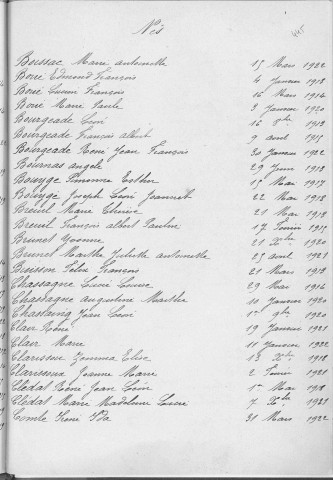 Nés
445
Boissac Marie Antoinette 15 Mars 1922
Borie Edmond François 4 Janvier 1918
Borie Lucien François 16 Mai 1914
Borie Marie Paule 3 Janvier 1920
Bourgeade Léoni 16 8bre 1913
Bourgeade François Albert 9 avril 1915
Bourgeade René Jean François 30 Janvier 1922
Bournas Angèle 29 Juin 1918
Bouyge Simonne Esther 15 Mai 1917
Bouyge Joseph Léon Jeannet 22 Mai 1918
Breuil Marie 21 Mai 1919
Breuil François Albert Paulin 17 Février 1915
Brunet Yvonne 21 1920
Brunet Marthe Juliette Antoinette 25 avril 1921
Buisson Félix François 21 Mars 1913
Chassagne Lucie Louise 29 Mai 1916
Chassagne Augustine Marthe 10 Janvier 1920
Chastaing Jean Léon 1er 9bre 1920
Clair René 19 Janvier 1921
Clair Marie 11 Janvier 1922
Clarissou Gemma Elise 13 Xbre 1918
Clarissoux Jeanne Marie 2 Février 1921
Clédat René Jean Léon 1er Mai 1918
Clédat Marie Madeleine Lucie 7 Xbre 1921
Comte Irène Ida 31 Mars 1922